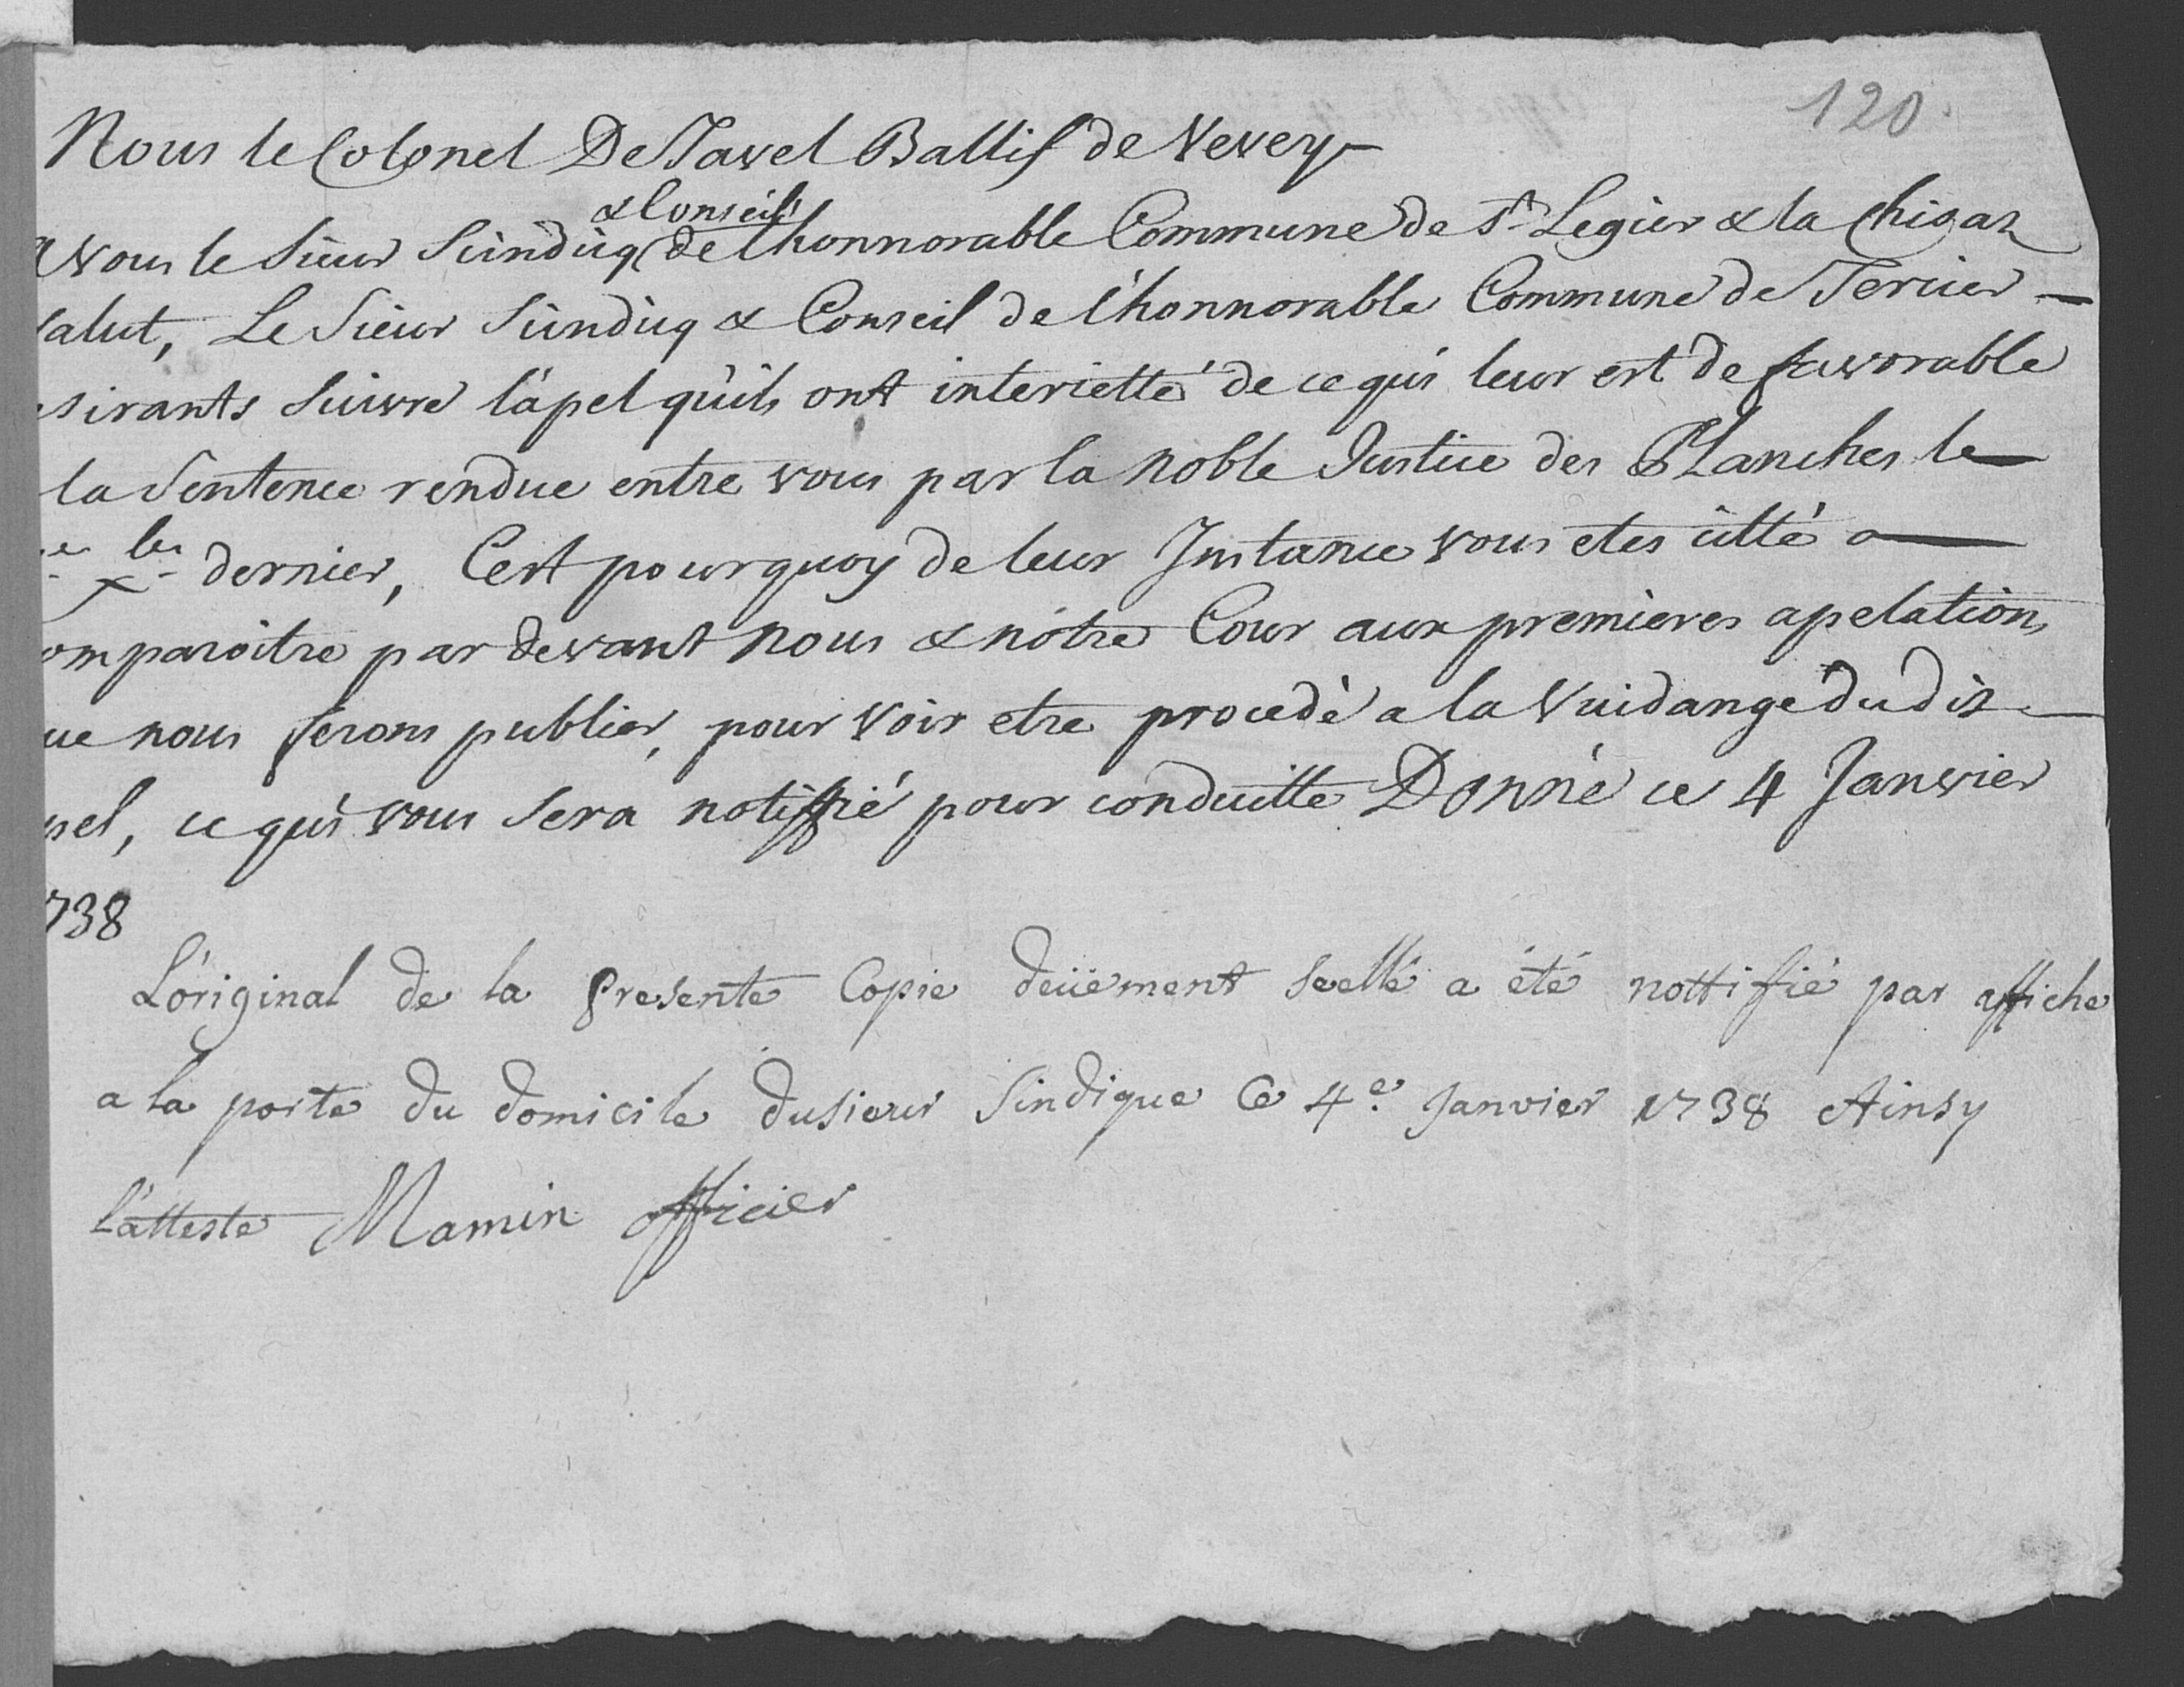 120.
Nous le Colonel De Tavel Ballif de Vevey
A vous le Sieur Sindiq & Conseil de l'honnorable Commune de St Legier & la Chisaz
salut, Le Sieur Sindiq & Conseil de l'honnorable Commune de Tercier
sirants Suivre l'apel qu'ils ont interietté de ce qui leur est defavorable
la Sentence rendue entre vous par la Noble Justice des PLanches le
xbr dernier, C'est pourquoy de leur Instance vous etes citté a
omparoitre par devant nous & nôtre Cour aux premieres apelations
ue nous ferons publier, pour voir etre procedé a la Vuidange du dit
pel, ce qui vous sera notiffié pour conduitte Donné ce 4 Janvier
738
L'original de la presente Copie deüement scellé a été nottifié par affiche
a la porte du domicile du sieur Sindique Ce 4e Janvier 1738 Ainsy
l'atteste Mamin officier